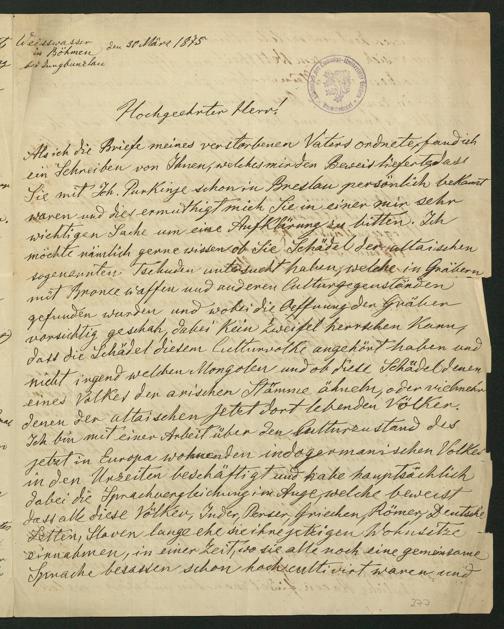 Weisswasser
in Böhmen
bei Jungbunzlau
den 30 März 1875
Hochgeehrter Herr!
Als ich die Briefe meines verstorbenen Vaters ordnete, fand ich
ein Schreiben von Ihnen, welches mir den Beweis liefert, dass
Sie mit Joh. Purkinje schon in Breslau persönlich bekannt
waren und dies ermuthigt mich Sie in einer mir sehr
wichtigen Sache um eine Aufklärung zu bitten. Ich
möchte nämlich gerne wissen ob Sie Schädel der altaischen
sogenannten Tschuden untersucht haben, welche in Gräbern
mit Bronce waffen und anderen Culturgegenständen
gefunden wurden und wobei die Oeffnung der Gräber
vorsichtig geschah, dabei kein Zweifel herrschen kann,
dass die Schädel diesem Culturvolke angehört haben und
nicht irgend welchen Mongolen und ob diese Schädel denen
eines Volkes der arischen Stämme ähneln, oder vielmehr
denen der altaischen jetzt dort lebenden Völker.
Ich bin mit einer Arbeit über den Culturzustand des
jetzt in Europa wohnenden indogermanischen Volkes
in den Urzeiten beschäftigt und habe hauptsächlich
dabei die Sprachvergleichung im Auge, welche beweist
dass alle diese Völker, Inder, Perser, Griechen, Römer, Deutsche
Letten, Slaven lange ehe sie ihre jetzigen Wohnsitze
einnahmen, in einer Zeit, wo sie alle noch eine gemeinsame
Sprache besassen schon hoch cultivirt waren und
377